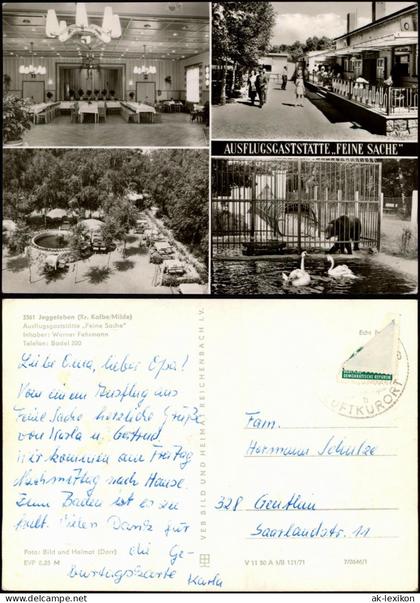 AUSFLUGSGASTSTÄTTE „FEINE SACHE"
3561 Jeggeleben (Kr. Kalbe/Milde)
Ausflugsgaststätte „Feine Sache"
Inhaber: Werner Fehsmann
Telefon: Badel 200
Liebe Oma, lieber Opa!
Von einem Ausflug aus
Feine Sache herzliche Grüße
von Karla u. Gertrud
Wir kommen am Freitag
Nachmittag nach Hause.
Zum Baden ist es zu
kalt. Vielen Dank für
die Ge-
burtstagskarte
Karla
Foto: Bild und Heimat (Darr)
EVP 0,25 M
VEB BILD UND HEIMAT REICHENBACH I. V.
Echt
DEMOKRATISCHE REPUBLIK
LUFTKURORT
Fam.
Hermann Schulze
328 Genthin
Saarlandstr. 11
V 11 50 A 1/B 131/71
ak-lexikon
© ak-lexikon.com